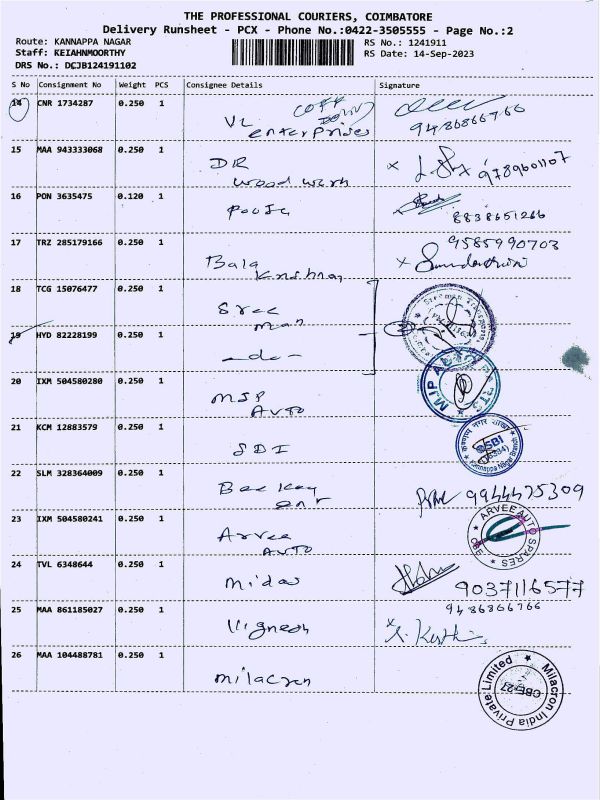 THE PROFESSIONAL COURIERS, COIMBATORE
Delivery Runsheet - PCX - Phone No.:0422-3505555 - Page No.:2
Route: KANNAPPA NAGAR
RS No.: 1241911
Staff: KEIAHNMOORTHY
RS Date: 14-Sep-2023
DRS No.: DCJB124191102
S No Consignment No Weight PCS Consignee Details Signature
14 CNR 1734287 0.250 1
VL enterprises
9486866766
15 MAA 943333068 0.250 1
DR wood work
9789601107
16 PON 3635475 0.120 1
Pooja
8838651266
17 TRZ 285179166 0.250 1
Bala Krishnan
9585990703
18 TCG 15076477 0.250 1
Sree man
19 HYD 82228199 0.250 1
-do-
20 IXM 504580280 0.250 1
MJP AUTO
21 KCM 12883579 0.250 1
SBI
SBI
Kannappa Nagar Branch
22 SLM 328364009 0.250 1
9944475309
23 IXM 504580241 0.250 1
Arvee AUTO
ARVEE AUTO SPARES
CBE
24 TVL 6348644 0.250 1
Midas
9037116577
25 MAA 861185027 0.250 1
Vignesh
9486866766
26 MAA 104488781 0.250 1
milacron
Milacron India Private Limited
CBE-27